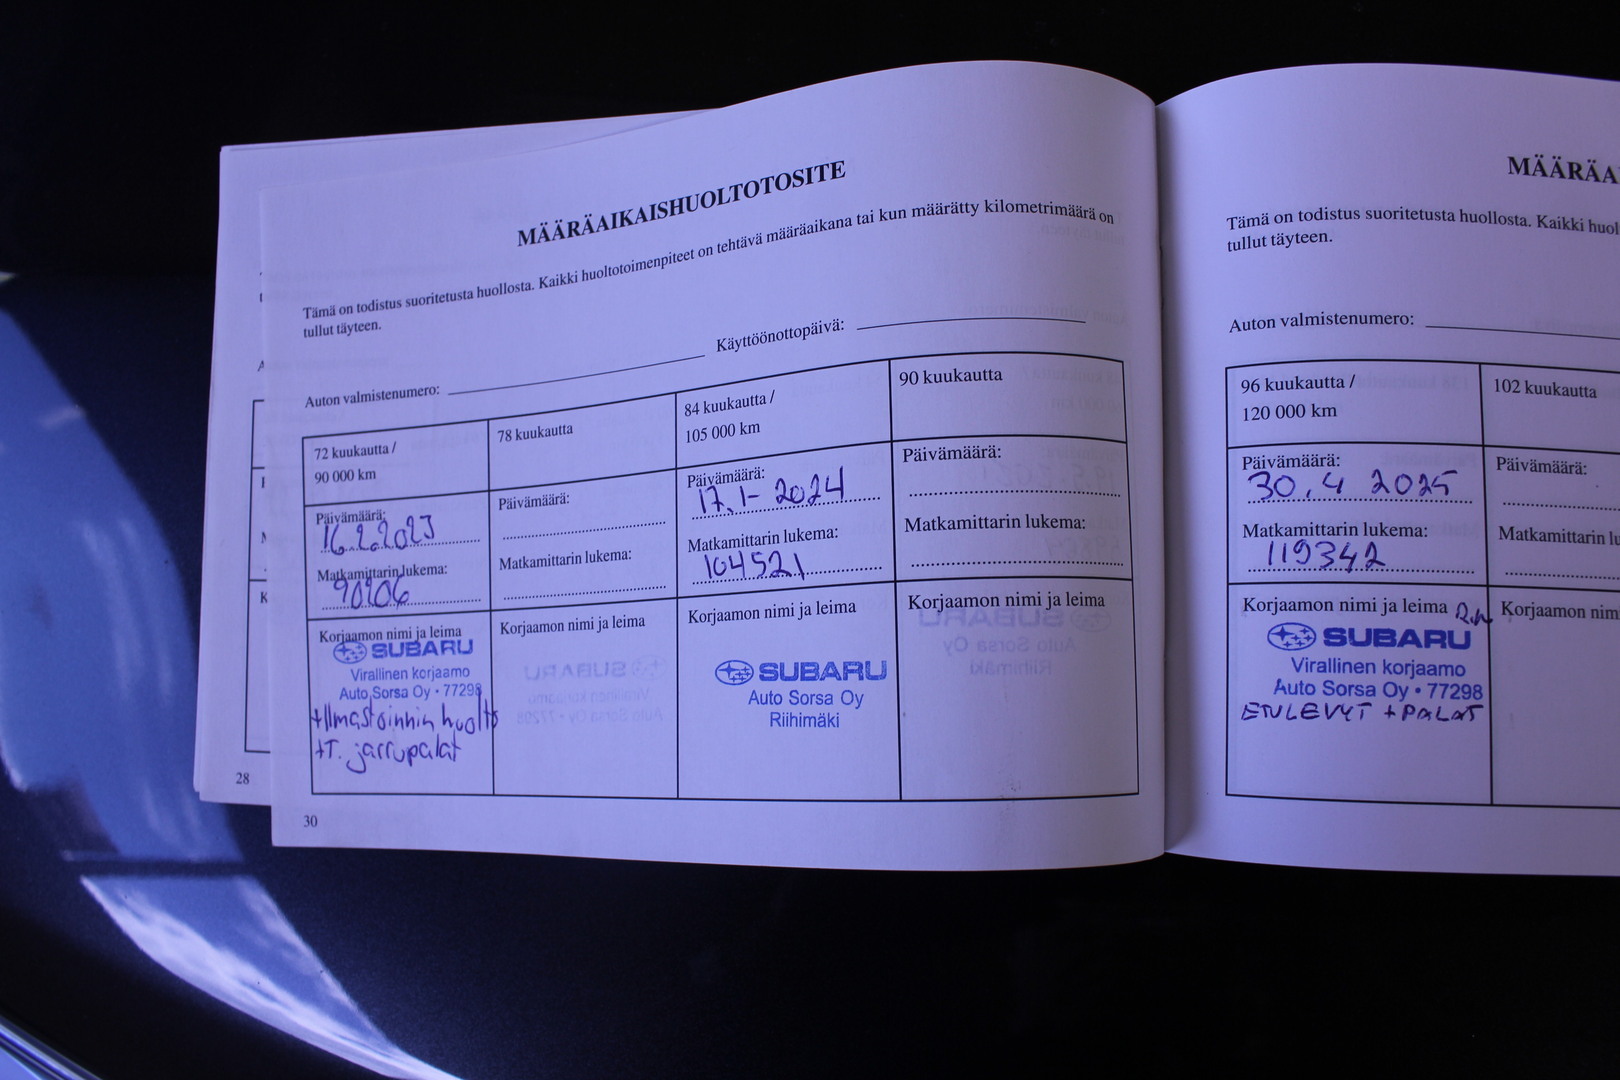 MÄÄRÄAIKAISHUOLTOTOSITE
Tämä on todistus suoritetusta huollosta. Kaikki huoltotoimenpiteet on tehtävä määräaikana tai kun määrätty kilometrimäärä on
tullut täyteen.
Auton valmistenumero: Käyttöönottopäivä:
72 kuukautta /
90 000 km
Päivämäärä:
16.2.2023
Matkamittarin lukema:
90906
Korjaamon nimi ja leima
SUBARU
Virallinen korjaamo
Auto Sorsa Oy • 77298
+Ilmastoinnin huolto
+T. jarrupalat
78 kuukautta
Päivämäärä:
Matkamittarin lukema:
Korjaamon nimi ja leima
84 kuukautta /
105 000 km
Päivämäärä:
17.1-2024
Matkamittarin lukema:
104521
Korjaamon nimi ja leima
SUBARU
Auto Sorsa Oy
Riihimäki
90 kuukautta
Päivämäärä:
Matkamittarin lukema:
Korjaamon nimi ja leima
28
30
MÄÄRÄA
Tämä on todistus suoritetusta huollosta. Kaikki huol
tullut täyteen.
Auton valmistenumero:
96 kuukautta /
120 000 km
Päivämäärä:
30.4 2025
Matkamittarin lukema:
119342
Korjaamon nimi ja leima
SUBARU
Virallinen korjaamo
Auto Sorsa Oy • 77298
ETULEVYT + PALAT
102 kuukautta
Päivämäärä:
Matkamittarin lu
Korjaamon nim